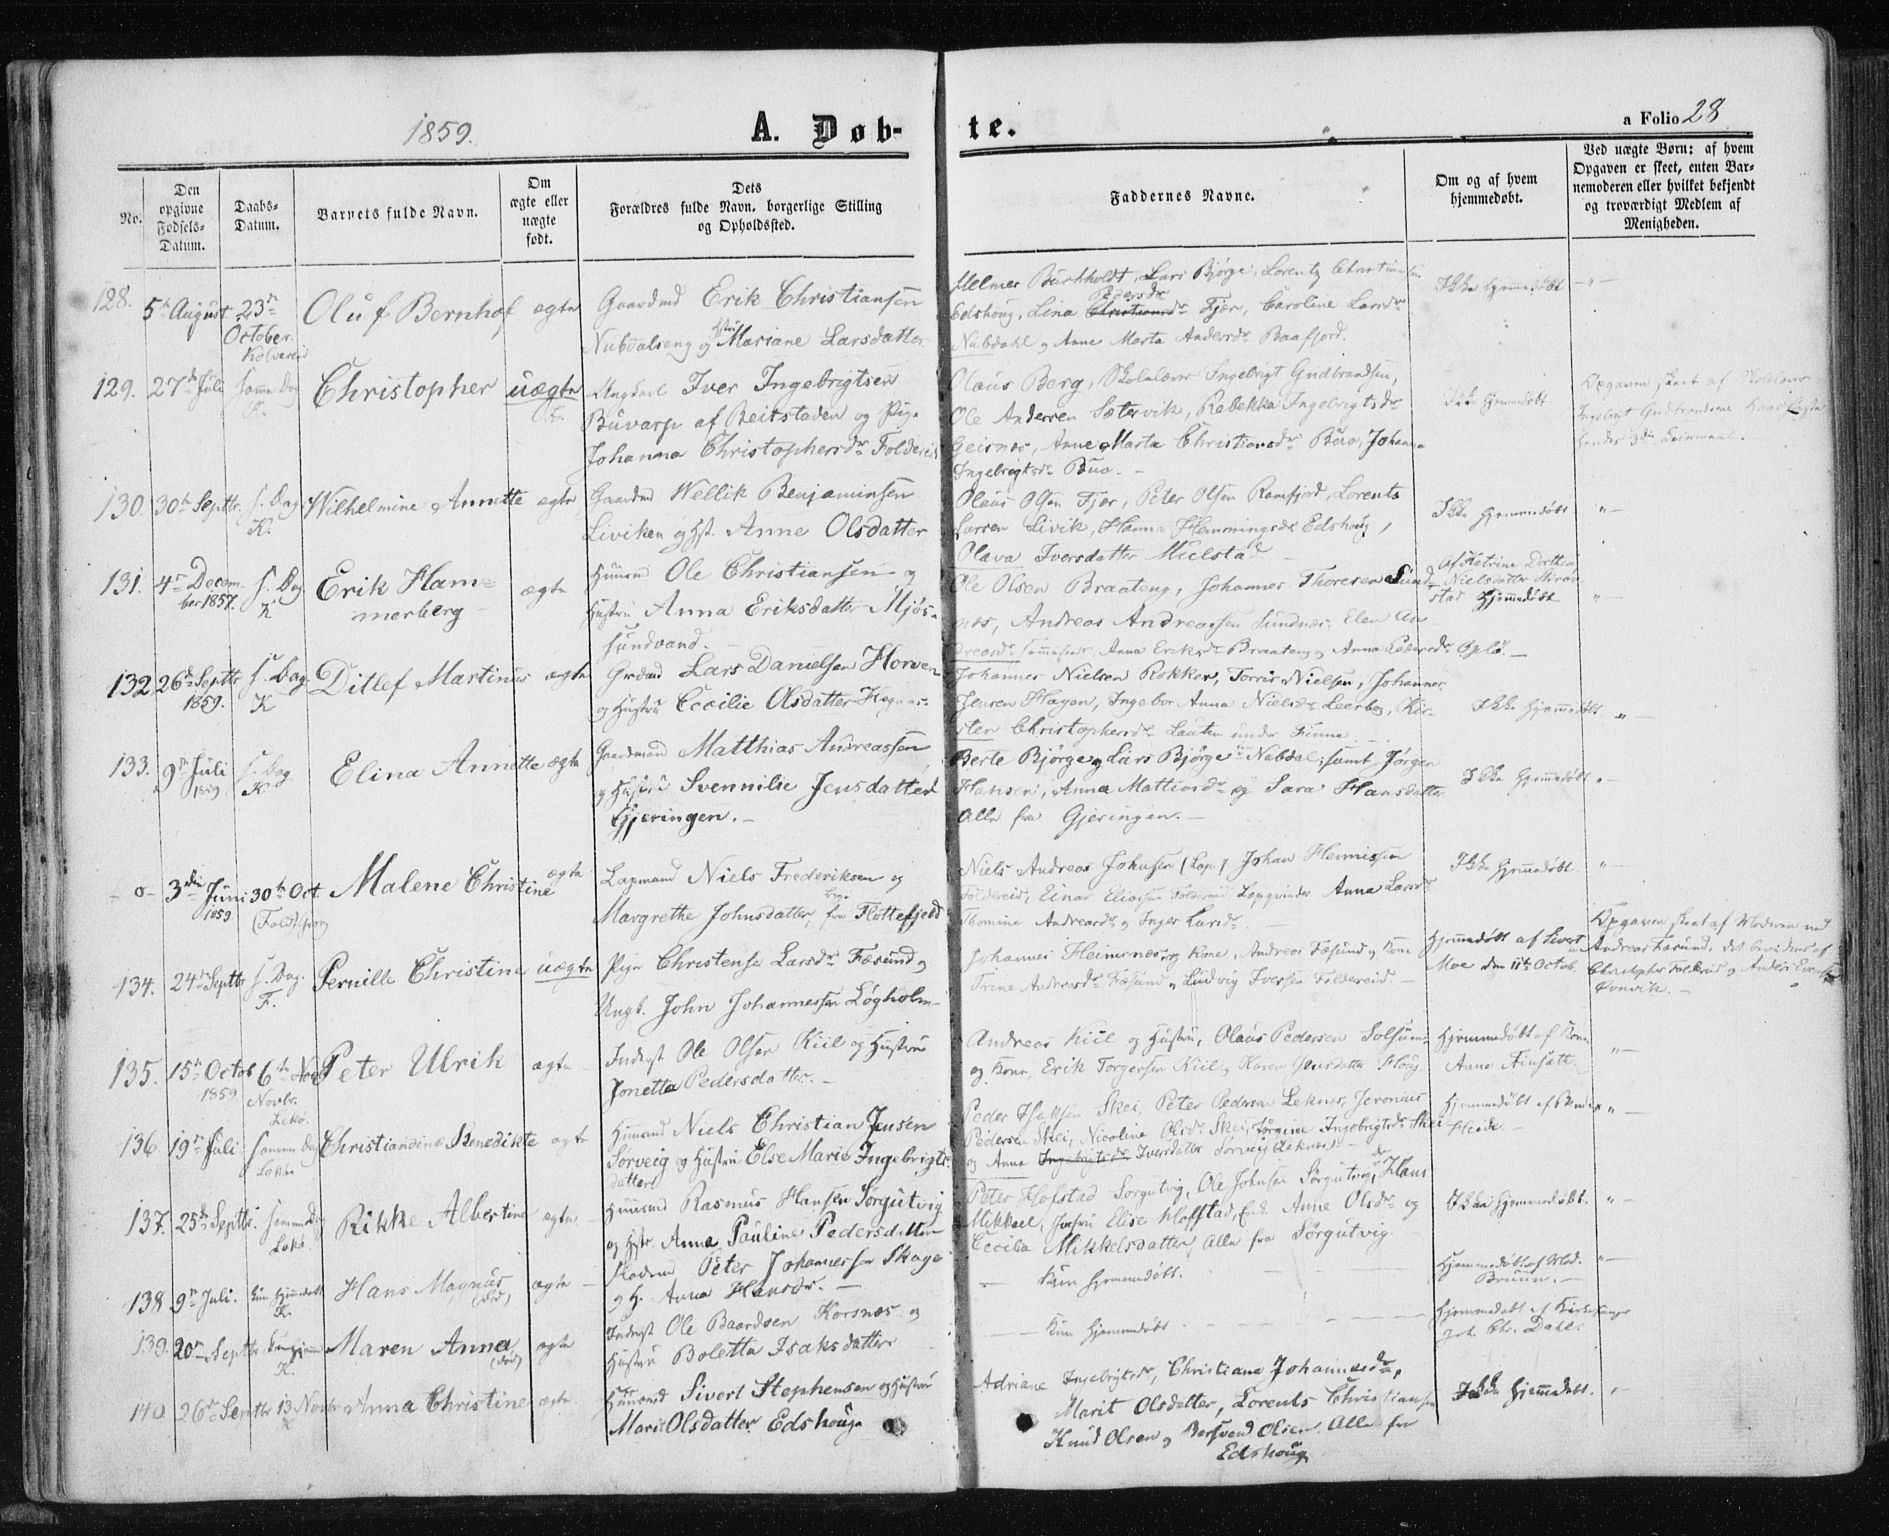 1859.
A. Døb- te.
a Folio 28
No.
Den opgivne Fødsels-Datum.
Daabs-Datum.
Barnets fulde Navn.
Om ægte eller uægte født.
Dets Forældres fulde Navn, borgerlige Stilling og Opholdssted.
Faddernes Navne.
Om og af hvem hjemmedøbt.
Ved uægte Børn: af hvem Opgaven er skeet, enten Barnemoderen eller hvilket bekjendt og troværdigt Medlem af Menigheden.
128. 5te August 23de October Kolvereid Oluf Bernhof ægte
Gaardmd Erik Christiansen
Nubdalseng og Hstru Mariane Larsdatter
Melmer Buchholdt, Lars Bjørge, Lorentz Christiansen
Edshoug, Lina Pedersdr Fjær, Caroline Larsdr
Nubdahl og Anne Marta Andersdr Baafjord.
Ikke hjemmedøbt
129. 27de Juli samme Dag F. Christopher uægte
Ungkarl Iver Ingebrigtsen
Buvarp af Beitstaden og Pige
Johanna Christophersdr Foldereid
Olaus Berg, Skolelærer Ingebrigt Gudbrandsen,
Ole Andersen Sætervik, Rebekka Ingebrigtsdr
Geisnes, Anne Marta Christiansdr Buo, Johanna
Ingebrigtsdr Buo. -
Ikke hjemmedøbt
Opgaven skeet af Skolelærer
Ingebrigt Gudbrandsen
130. 30te Septbr. s. Dag K. Wilhelmine Annette ægte
Gaardmd Wellik Benjaminsen
Liviken og Hst. Anne Olsdatter
Olaus Olsen Fjær, Peter Olsen Ramfjord, Lorents
Larsen Livik, Hanna Hemmingsdr Edshoug,
Olava Iversdatter Mulstad
Ikke hjemmedøbt
131. 4de December 1857. s. Dag K Erik Hammerberg ægte
Husmd Ole Christiansen og
Hustru Anna Eriksdatter Mjøs-
sundvand.
Ole Olsen Braateng, Johannes Thoresen Sund-
nes, Andreas Andreassen Sundnes, Elen An-
dreasdr sammesteds, Anna Eriksdr Braateng og Anna Pedersdr Oplø. -
Af Katrine Dorthea
Nielsdatter
stad hjemmedøbt
132. 26de Septbr 1859. s. Dag K Ditlef Martinus ægte
Grdmd Lars Danielsen Horven
og Hustru Cecilie Olsdatter
Johannes Nielsen Rokkes, Torris Nielsen, Johannes
Jensen Hagen, Ingebor Anna Nielsdr Leerbog, Kir-
sten Christophersdr Lauten under Finne
Ikke hjemmedøbt.
133. 9de Juli 1859 s. Dag K Elina Annette ægte
Gaardmand Matthias Andreassen
og Hustru Svennilie Jensdatter
Gjeringen. -
Berte Bjørge og Lars Bjørge Nubdal; samt Jørgen
Hansen, Anna Mattisdr og Sara Hansdatter
Alle fra Gjeringen. -
Ikke hjemmedøbt
- o - 3die Juni 1859 30te Oct (Fold. ) Malene Christine ægte
Lapmand Niels Frederiksen og
Margrethe Johnsdatter, fra Flottefjeld
Niels Andreas Johnsen (Lap) Johan Hennissen
Foldereid, Einar Eliassen Foldereid Lapqvinder Anna Larsdr
Thomine Andreasdr og Inger Larsdr
Ikke hjemmedøbt
134. 24de Septbr s. Dag. F. Pernille Christine uægte
Pige Christense Larsdr Fæsund og
Ungk. John Johannessen Løgholm
Johannes Heimsnes og Kone, Andreas Fæsund og Kone
Trine Andreasdr Fæsund, Ludvig Iversen Foldereid. -
Hjemmedøbt af Sivert
Moe den 11te Octob.
Opgaven skeet af Moderen ved
Andreas Fæsund, det bevidnes af
Christopher Foldereid og Anders Evensen
Øvnvik. -
135. 15de Octob 1859. 6te Novbr. Lekø. Peter Ulrik ægte
Inderst Ole Olsen Kiil og Hustru
Jonetta Pedersdatter. -
Andreas Kiil og Hustru, Olaus Pedersen Solsum
og Kone, Erik Torgersen Kiil og Karen Jensdatter Houg
Hjemmedøbt af Kone
Anne
136. 19de Juli samme Dag Lekø Christiandine Benedikte ægte
Husmand Niels Christian Jensen
Sørveig og Hustru Else Marie Ingebrigts-
datter
Peder Isaksen Skei, Peter Pedersen Leknes, Jeronius
Pedersen Skei, Nicoline Olsdr Skei, Jørgine Ingebrigtsdr Skei
og Anne Iversdatter Sørveig Leknes.
Hjemmedøbt af
137. 25de Septbr. samme Dag Lekø. Rikke Albertine ægte
Husmand Rasmus Hansen Sørgutvig
og Hstr. Anna Pauline Pedersdatter
Peter Hofstad Sørgutvig, Ole Johnsen Sørgutvig, Hans
Mikkael, Jomfru Elise Hofstad, Enk. Anne Olsdr og
Cecilia Mikkelsdatter, Alle fra Sørgutvig
Ikke hjemmedøbt.
138 9de Juli. kun hjemmedøbt K. Hans Magnus (død) ægte
Peter Johannessen Skage
og H. Anna Hansdr. -
Kun hjemmedøbt.
Hjemmedøbt af Mad.
Bruun. -
139. 20de Septbr K. Maren Anna (død) ægte
Inderst Ole Baardsen Korsnes og
Hustru Boletta Isaksdatter
Kun hjemmedøbt
Hjemmedøbt af Kirkesanger
Joh. Chr. Dahl.
140 26de Septbr 13 Novbr K Anna Christine ægte
Husmand Sivert Stephensen og Hustru
Marit Olsdatter Edshoug
Adriane Ingebrigtsdr, Christiane Johannesdr,
Marit Olsdatter, Lorents Christiansen
Knud Olsen og Bersvend Olsen. Alle fra
Edshoug
Ikke hjemmedøbt.